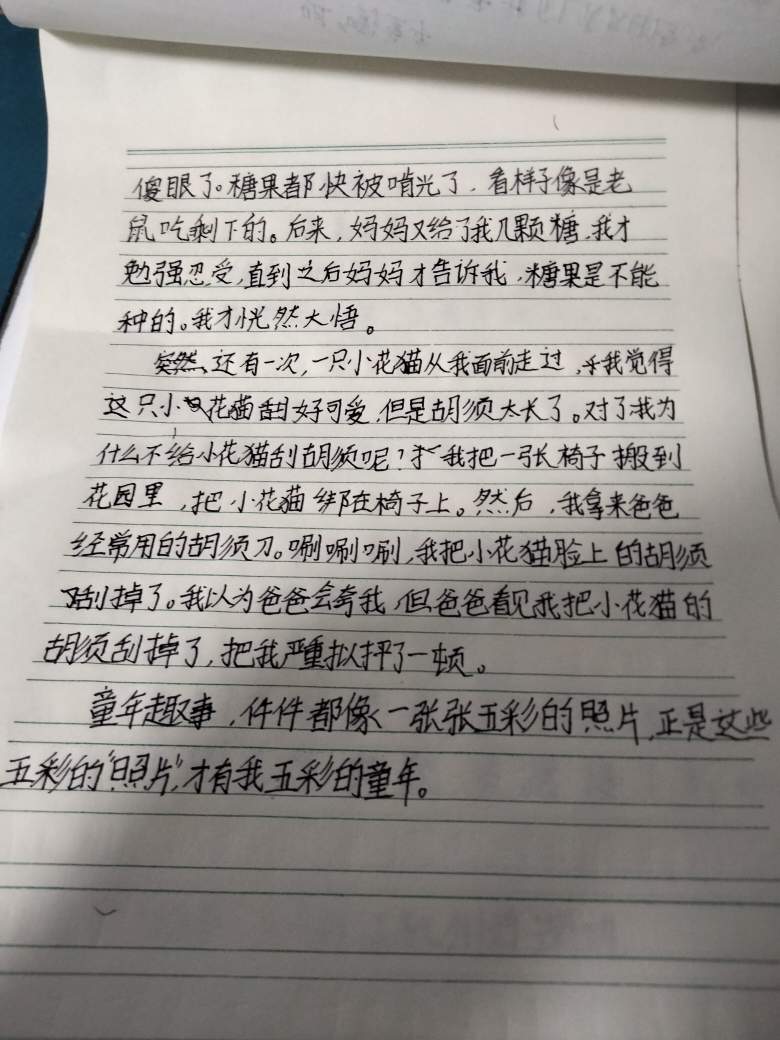 傻眼了。糖果都快被啃光了，看样子像是老
鼠吃剩下的。后来，妈妈又给了我几颗糖，我才
勉强忍受，直到之后妈妈才告诉我，糖果是不能
种的。我才恍然大悟。
突然，还有一次，一只小花猫从我面前走过，我觉得
这只小花猫甜好可爱，但是胡须太长了。对了我为
什么不给小花猫刮胡须呢？我把一张椅子搬到
花园里，把小花猫绑在椅子上。然后，我拿来爸爸
经常用的胡须刀。唰唰唰，我把小花猫脸上的胡须
刮掉了。我以为爸爸会夸我，但爸爸看见我把小花猫的
胡须刮掉了，把我严重拟抨了一顿。
童年趣事，件件都像一张张五彩的照片，正是这些
五彩的“照片”，才有我五彩的童年。